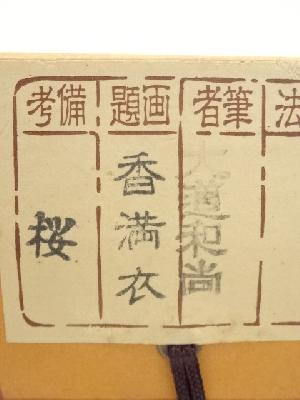 法
筆者
大道和尚
画題
香満衣
備考
桜